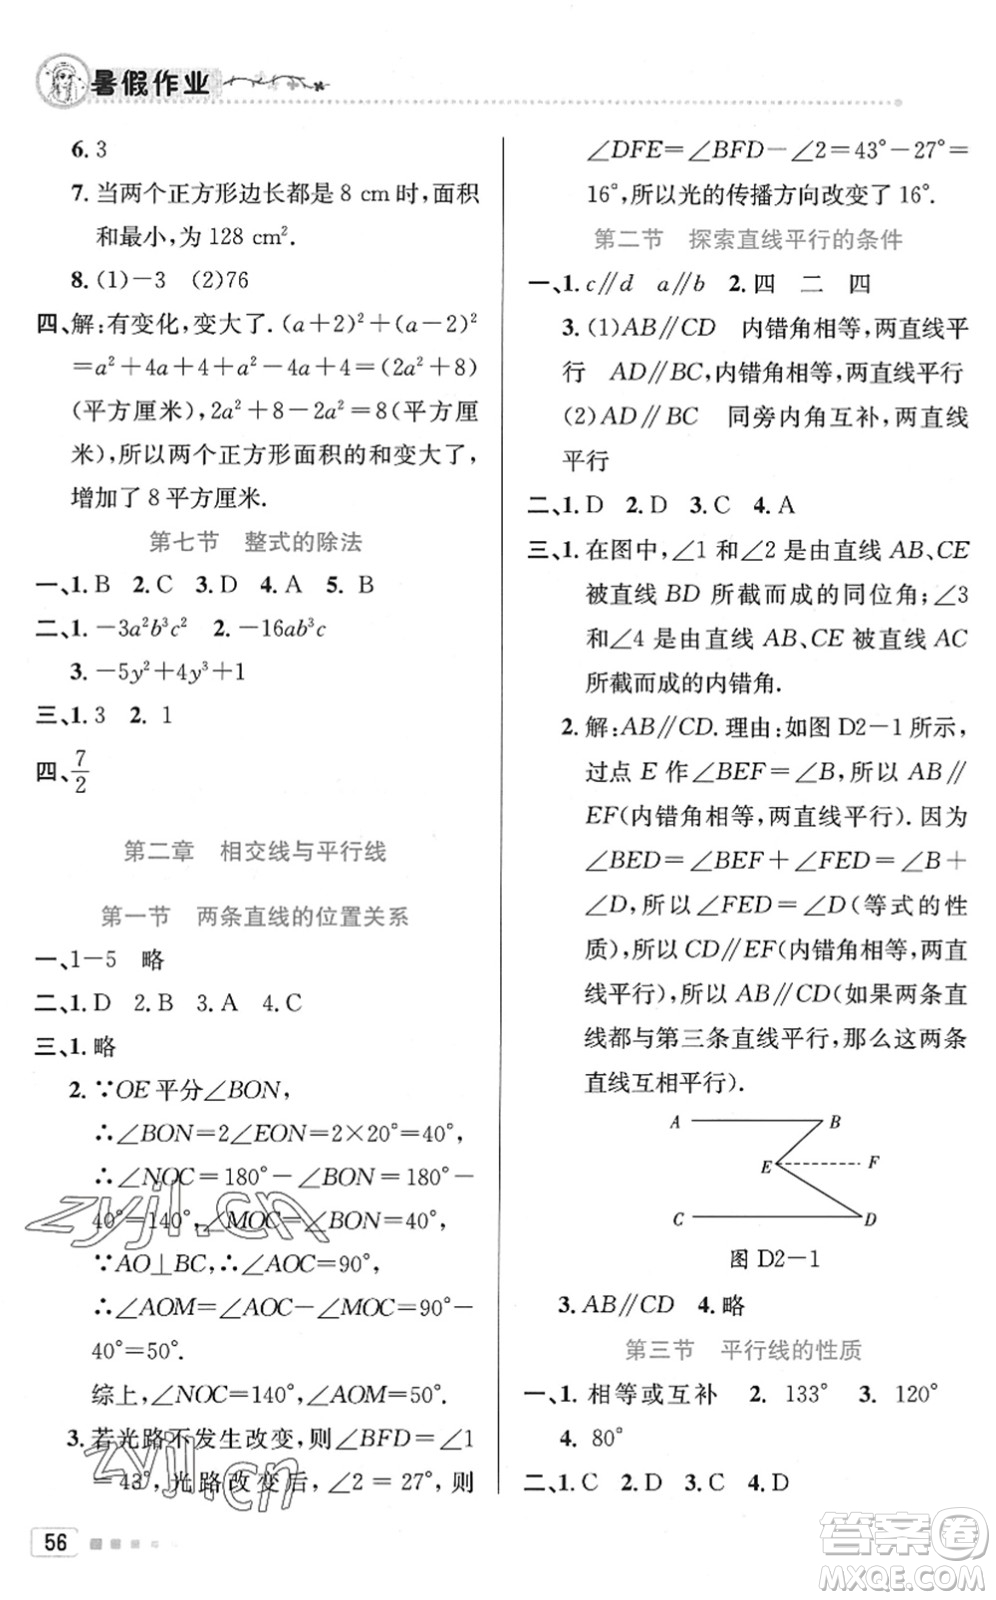 暑假作业
6. 3
7. 当两个正方形边长都是 8 cm 时，面积
和最小，为 128 cm².
8. (1)－3 (2)76
四、解：有变化，变大了. (a＋2)²＋(a－2)²
＝a²＋4a＋4＋a²－4a＋4＝(2a²＋8)
(平方厘米)，2a²＋8－2a²＝8(平方厘
米)，所以两个正方形面积的和变大了，
增加了 8 平方厘米.
第七节 整式的除法
一、1. B 2. C 3. D 4. A 5. B
二、1. －3a²b³c² 2. －16ab³c
3. －5y²＋4y³＋1
三、1. 3 2. 1
四、7/2
第二章 相交线与平行线
第一节 两条直线的位置关系
一、1－5 略
二、1. D 2. B 3. A 4. C
三、1. 略
2. ∵OE 平分∠BON，
∴∠BON＝2∠EON＝2×20°＝40°，
∴∠NOC＝180°－∠BON＝180°－
40°＝140°，∠MOC＝∠BON＝40°，
∵AO⊥BC，∴∠AOC＝90°，
∴∠AOM＝∠AOC－∠MOC＝90°－
40°＝50°.
综上，∠NOC＝140°，∠AOM＝50°.
3. 若光路不发生改变，则∠BFD＝∠1
＝43°，光路改变后，∠2＝27°，则
56
∠DFE＝∠BFD－∠2＝43°－27°＝
16°，所以光的传播方向改变了 16°.
第二节 探索直线平行的条件
一、1. c∥d a∥b 2. 四 二 四
3. (1)AB∥CD 内错角相等，两直线平
行 AD∥BC，内错角相等，两直线平行
(2)AD∥BC 同旁内角互补，两直线
平行
二、1. D 2. D 3. C 4. A
三、1. 在图中，∠1 和∠2 是由直线 AB、CE
被直线 BD 所截而成的同位角；∠3
和∠4 是由直线 AB、CE 被直线 AC
所截而成的内错角.
2. 解：AB∥CD. 理由：如图 D2－1 所示，
过点 E 作∠BEF＝∠B，所以 AB∥
EF(内错角相等，两直线平行). 因为
∠BED＝∠BEF＋∠FED＝∠B＋
∠D，所以∠FED＝∠D(等式的性
质)，所以 CD∥EF(内错角相等，两直
线平行)，所以 AB∥CD(如果两条直
线都与第三条直线平行，那么这两条
直线互相平行).
A B
E F
C D
图 D2－1
3. AB∥CD 4. 略
第三节 平行线的性质
一、1. 相等或互补 2. 133° 3. 120°
4. 80°
二、1. C 2. D 3. C 4. D
zyjl.cn
zyjl.cn
答案圈
MXQE.COM